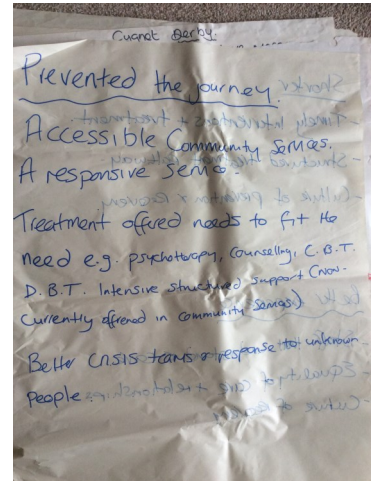 Cygnet Derby.
Prevented the journey.
Accessible Community Services.
A responsive Service.
Treatment offered needs to fit the
need e.g. psychotherapy, Counselling, C.B.T.
D.B.T. Intensive structured support (non-
Currently offered in community services)
Better crisis teams & response to unknown
people.